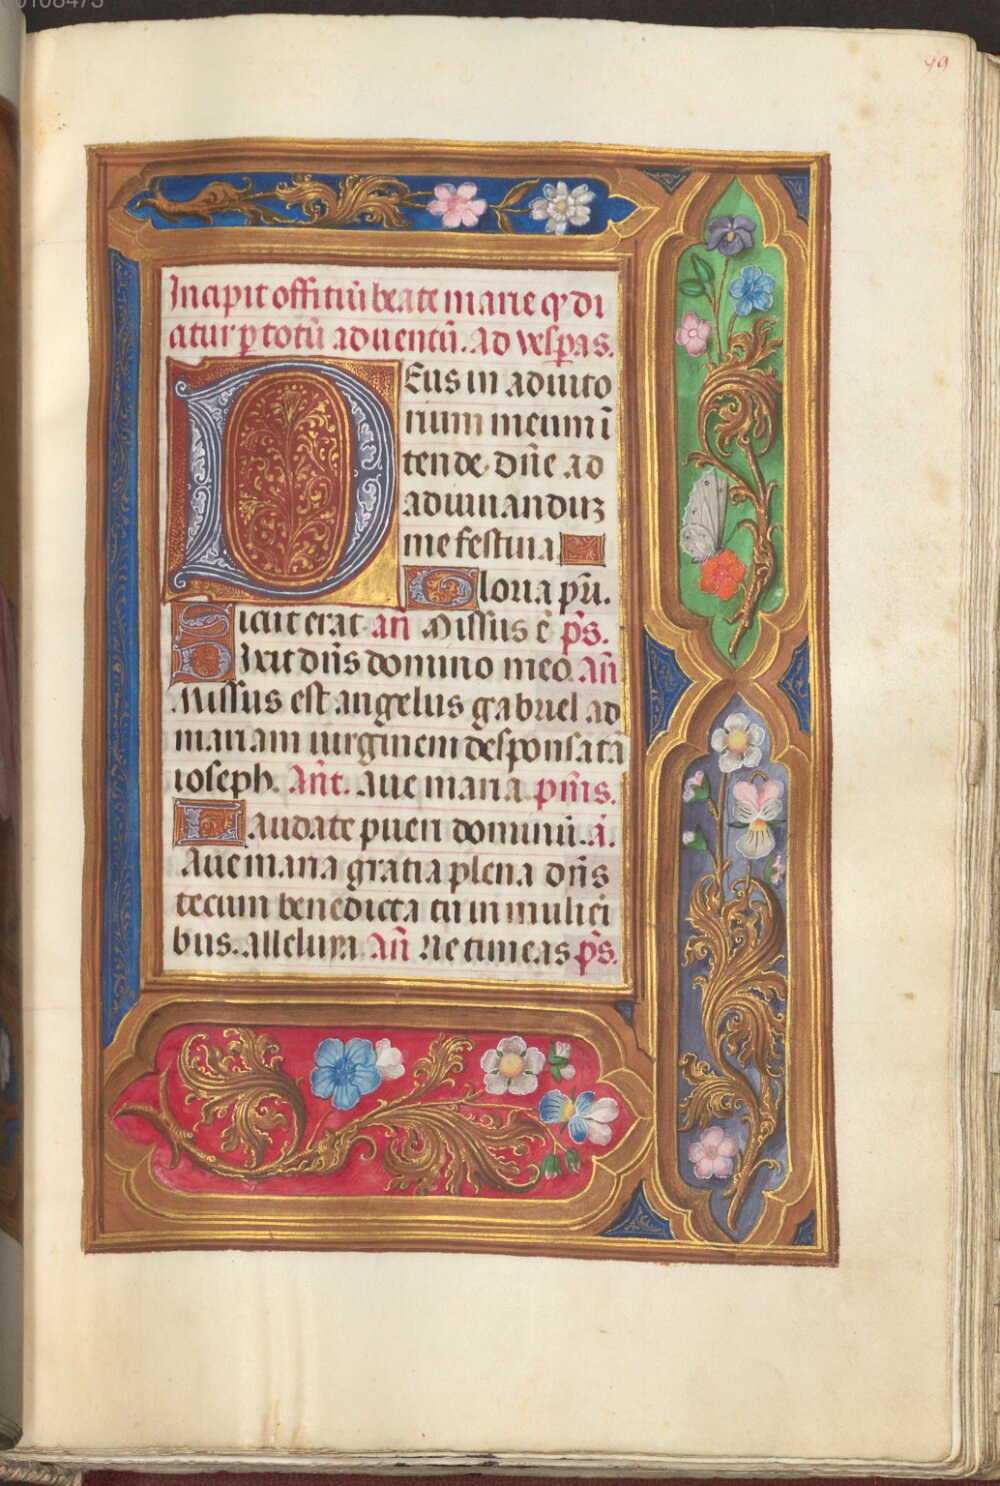 99
Incipit offitiū beate marie q̄ di
citur p totū aduentū. Ad vesp̄as.
Deus in adiuto
rium meum ī
tende. dn̄e ad
adiuuanduʒ
me festina.
Gloria pr̄i.
Sicut erat an̄ Missus ē p̄s.
Dixit dn̄s domino meo. An̄
Missus est angelus gabriel ad
mariam uirginem desponsatā
ioseph. An̄t. Aue maria. pm̄s.
Laudate pueri dominū. ā.
Aue maria gratia plena dn̄s
tecum benedicta tu in mulieri
bus. alleluya An̄ Ne timeas p̄s.